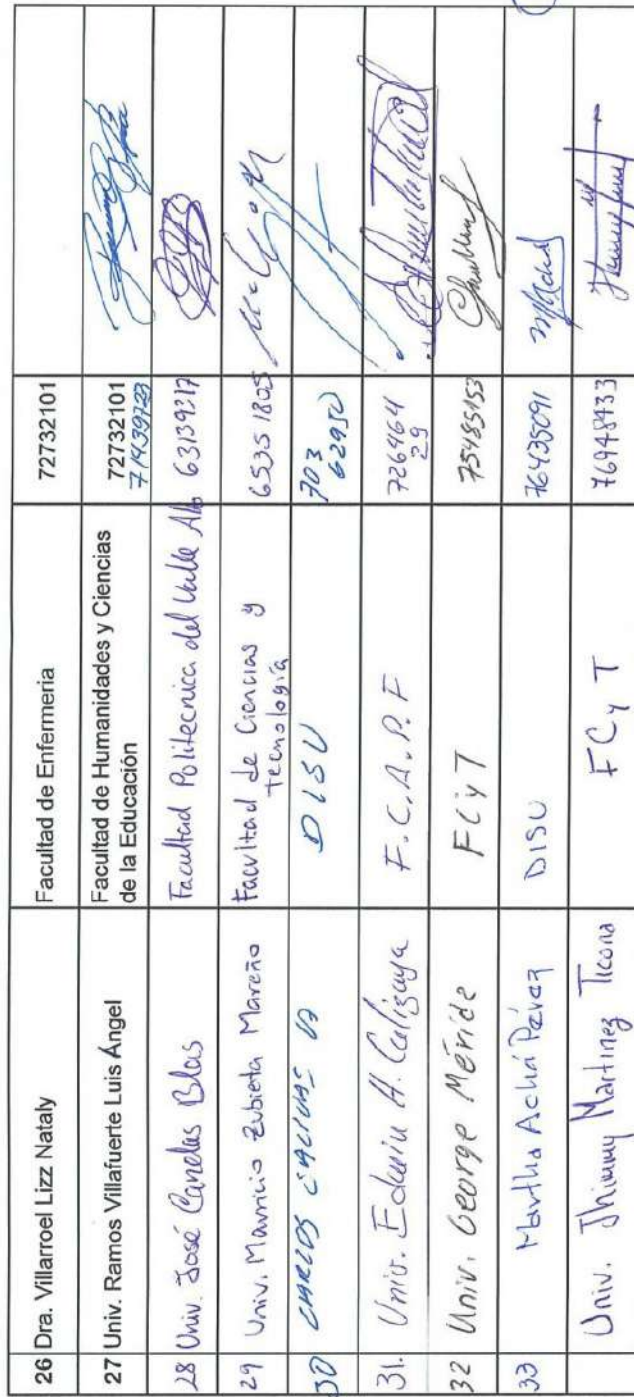 26 Dra. Villarroel Lizz Nataly Facultad de Enfermeria 72732101
27 Univ. Ramos Villafuerte Luis Ángel Facultad de Humanidades y Ciencias 72732101
de la Educación 71439723
28 Univ. José Canelas Blas Facultad Politecnica del Valle Alto 63139217
29 Univ. Mauricio Zubieta Mareño Facultad de Ciencias y 65351805
tecnología
30 CARLOS DISU 703
62950
31. Univ. Edwin H. Calizaya F.C.A.P.F 726464
29
32 Univ. George Méride FCyT 75485153
33 Martha Achá Pérez DISU 76435091
Univ. Jhimmy Martinez Ticona FCyT 76948433